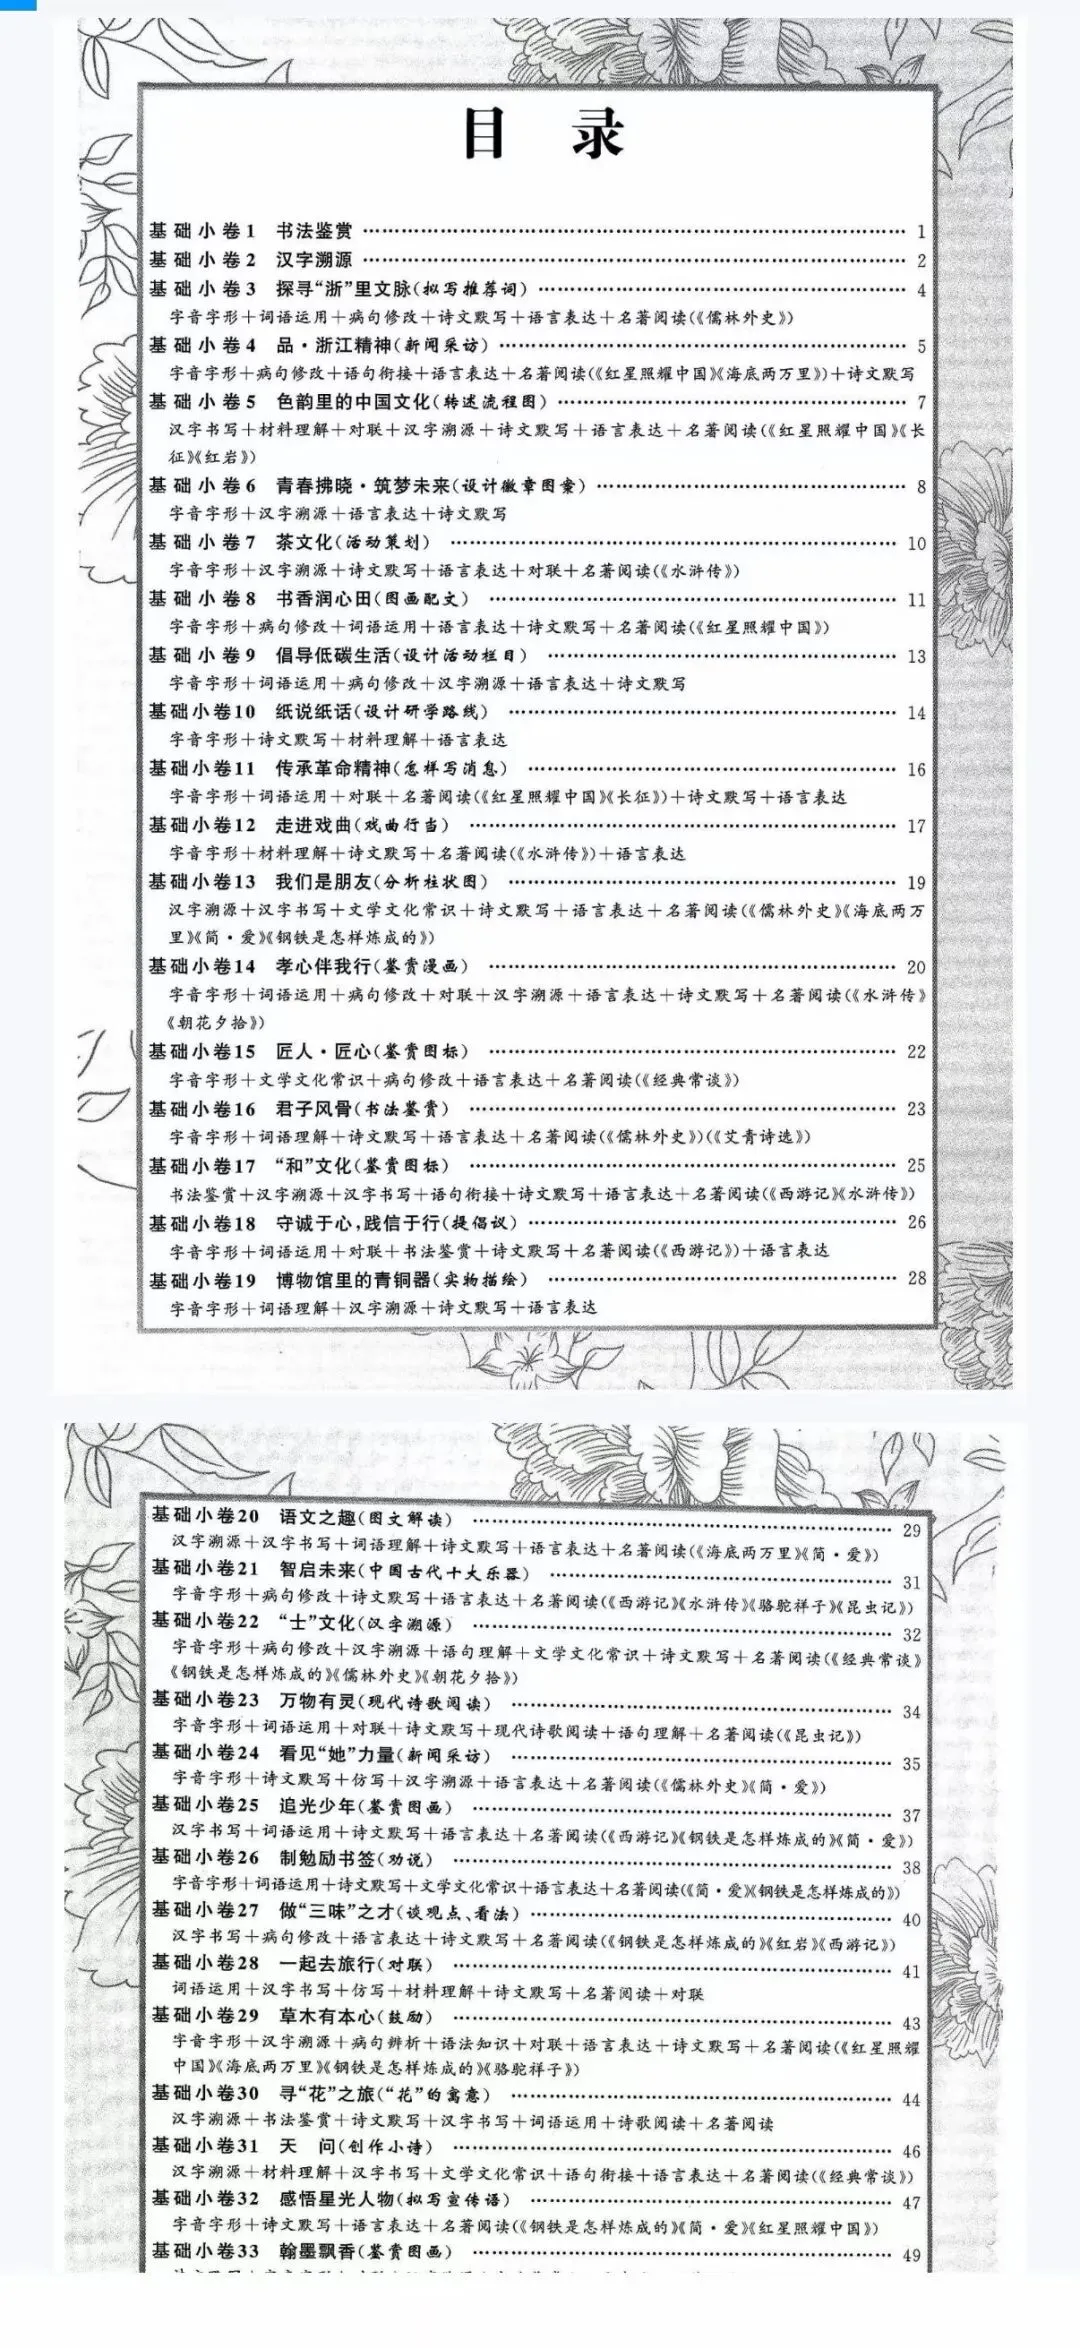 目 录
基础小卷1 书法鉴赏 …… 1
基础小卷2 汉字溯源 …… 2
基础小卷3 探寻“浙”里文脉(拟写推荐词) …… 4
字音字形+词语运用+病句修改+诗文默写+语言表达+名著阅读(《儒林外史》)
基础小卷4 品·浙江精神(新闻采访) …… 5
字音字形+病句修改+语句衔接+语言表达+名著阅读(《红星照耀中国》《海底两万里》)+诗文默写
基础小卷5 色韵里的中国文化(转述流程图) …… 7
汉字书写+材料理解+对联+汉字溯源+诗文默写+语言表达+名著阅读(《红星照耀中国》《长
征》《红岩》)
基础小卷6 青春拂晓·筑梦未来(设计徽章图案) …… 8
字音字形+汉字溯源+语言表达+诗文默写
基础小卷7 茶文化(活动策划) …… 10
字音字形+汉字溯源+诗文默写+语言表达+对联+名著阅读(《水浒传》)
基础小卷8 书香润心田(图画配文) …… 11
字音字形+病句修改+词语运用+语言表达+诗文默写+名著阅读(《红星照耀中国》)
基础小卷9 倡导低碳生活(设计活动栏目) …… 13
字音字形+词语运用+病句修改+汉字溯源+语言表达+诗文默写
基础小卷10 纸说纸话(设计研学路线) …… 14
字音字形+诗文默写+材料理解+语言表达
基础小卷11 传承革命精神(怎样写消息) …… 16
字音字形+词语运用+对联+名著阅读(《红星照耀中国》《长征》)+诗文默写+语言表达
基础小卷12 走进戏曲(戏曲行当) …… 17
字音字形+材料理解+诗文默写+名著阅读(《水浒传》)+语言表达
基础小卷13 我们是朋友(分析柱状图) …… 19
汉字溯源+汉字书写+文学文化常识+诗文默写+语言表达+名著阅读(《儒林外史》《海底两万
里》《简·爱》《钢铁是怎样炼成的》)
基础小卷14 孝心伴我行(鉴赏漫画) …… 20
字音字形+词语运用+病句修改+对联+汉字溯源+语言表达+诗文默写+名著阅读(《水浒传》
《朝花夕拾》)
基础小卷15 匠人·匠心(鉴赏图标) …… 22
字音字形+文学文化常识+病句修改+语言表达+名著阅读(《经典常谈》)
基础小卷16 君子风骨(书法鉴赏) …… 23
字音字形+词语理解+诗文默写+语言表达+名著阅读(《儒林外史》)(《艾青诗选》)
基础小卷17 “和”文化(鉴赏图标) …… 25
书法鉴赏+汉字溯源+汉字书写+语句衔接+诗文默写+语言表达+名著阅读(《西游记》《水浒传》)
基础小卷18 守诚于心,践信于行(提倡议) …… 26
字音字形+词语运用+对联+书法鉴赏+诗文默写+名著阅读(《西游记》)+语言表达
基础小卷19 博物馆里的青铜器(实物描绘) …… 28
字音字形+词语理解+汉字溯源+诗文默写+语言表达
基础小卷20 语文之趣(图文解读) …… 29
汉字溯源+汉字书写+词语理解+诗文默写+语言表达+名著阅读(《海底两万里》《简·爱》)
基础小卷21 智启未来(中国古代十大乐器) …… 31
字音字形+病句修改+诗文默写+语言表达+名著阅读(《西游记》《水浒传》《骆驼祥子》《昆虫记》)
基础小卷22 “士”文化(汉字溯源) …… 32
字音字形+病句修改+汉字溯源+语句理解+文学文化常识+诗文默写+名著阅读(《经典常谈》
《钢铁是怎样炼成的》《儒林外史》《朝花夕拾》)
基础小卷23 万物有灵(现代诗歌阅读) …… 34
字音字形+词语运用+对联+诗文默写+现代诗歌阅读+语句理解+名著阅读(《昆虫记》)
基础小卷24 看见“她”力量(新闻采访) …… 35
字音字形+诗文默写+仿写+汉字溯源+语言表达+名著阅读(《儒林外史》《简·爱》)
基础小卷25 追光少年(鉴赏图画) …… 37
汉字书写+词语运用+诗文默写+语言表达+名著阅读(《西游记》《钢铁是怎样炼成的》《简·爱》)
基础小卷26 制勉励书签(劝说) …… 38
字音字形+词语运用+诗文默写+文学文化常识+语言表达+名著阅读(《简·爱》《钢铁是怎样炼成的》)
基础小卷27 做“三味”之才(谈观点、看法) …… 40
汉字书写+病句修改+语言表达+诗文默写+名著阅读(《钢铁是怎样炼成的》《红岩》《西游记》)
基础小卷28 一起去旅行(对联) …… 41
词语运用+汉字书写+仿写+材料理解+诗文默写+名著阅读+对联
基础小卷29 草木有本心(鼓励) …… 43
字音字形+汉字溯源+病句辨析+语法知识+对联+语言表达+诗文默写+名著阅读(《红星照耀
中国》《海底两万里》《钢铁是怎样炼成的》《骆驼祥子》)
基础小卷30 寻“花”之旅(“花”的寓意) …… 44
汉字溯源+书法鉴赏+诗文默写+汉字书写+词语运用+诗歌阅读+名著阅读
基础小卷31 天 问(创作小诗) …… 46
汉字溯源+材料理解+汉字书写+文学文化常识+语句衔接+语言表达+名著阅读(《经典常谈》)
基础小卷32 感悟星光人物(拟写宣传语) …… 47
字音字形+诗文默写+语言表达+名著阅读(《钢铁是怎样炼成的》《简·爱》《红星照耀中国》)
基础小卷33 翰墨飘香(鉴赏图画) …… 49